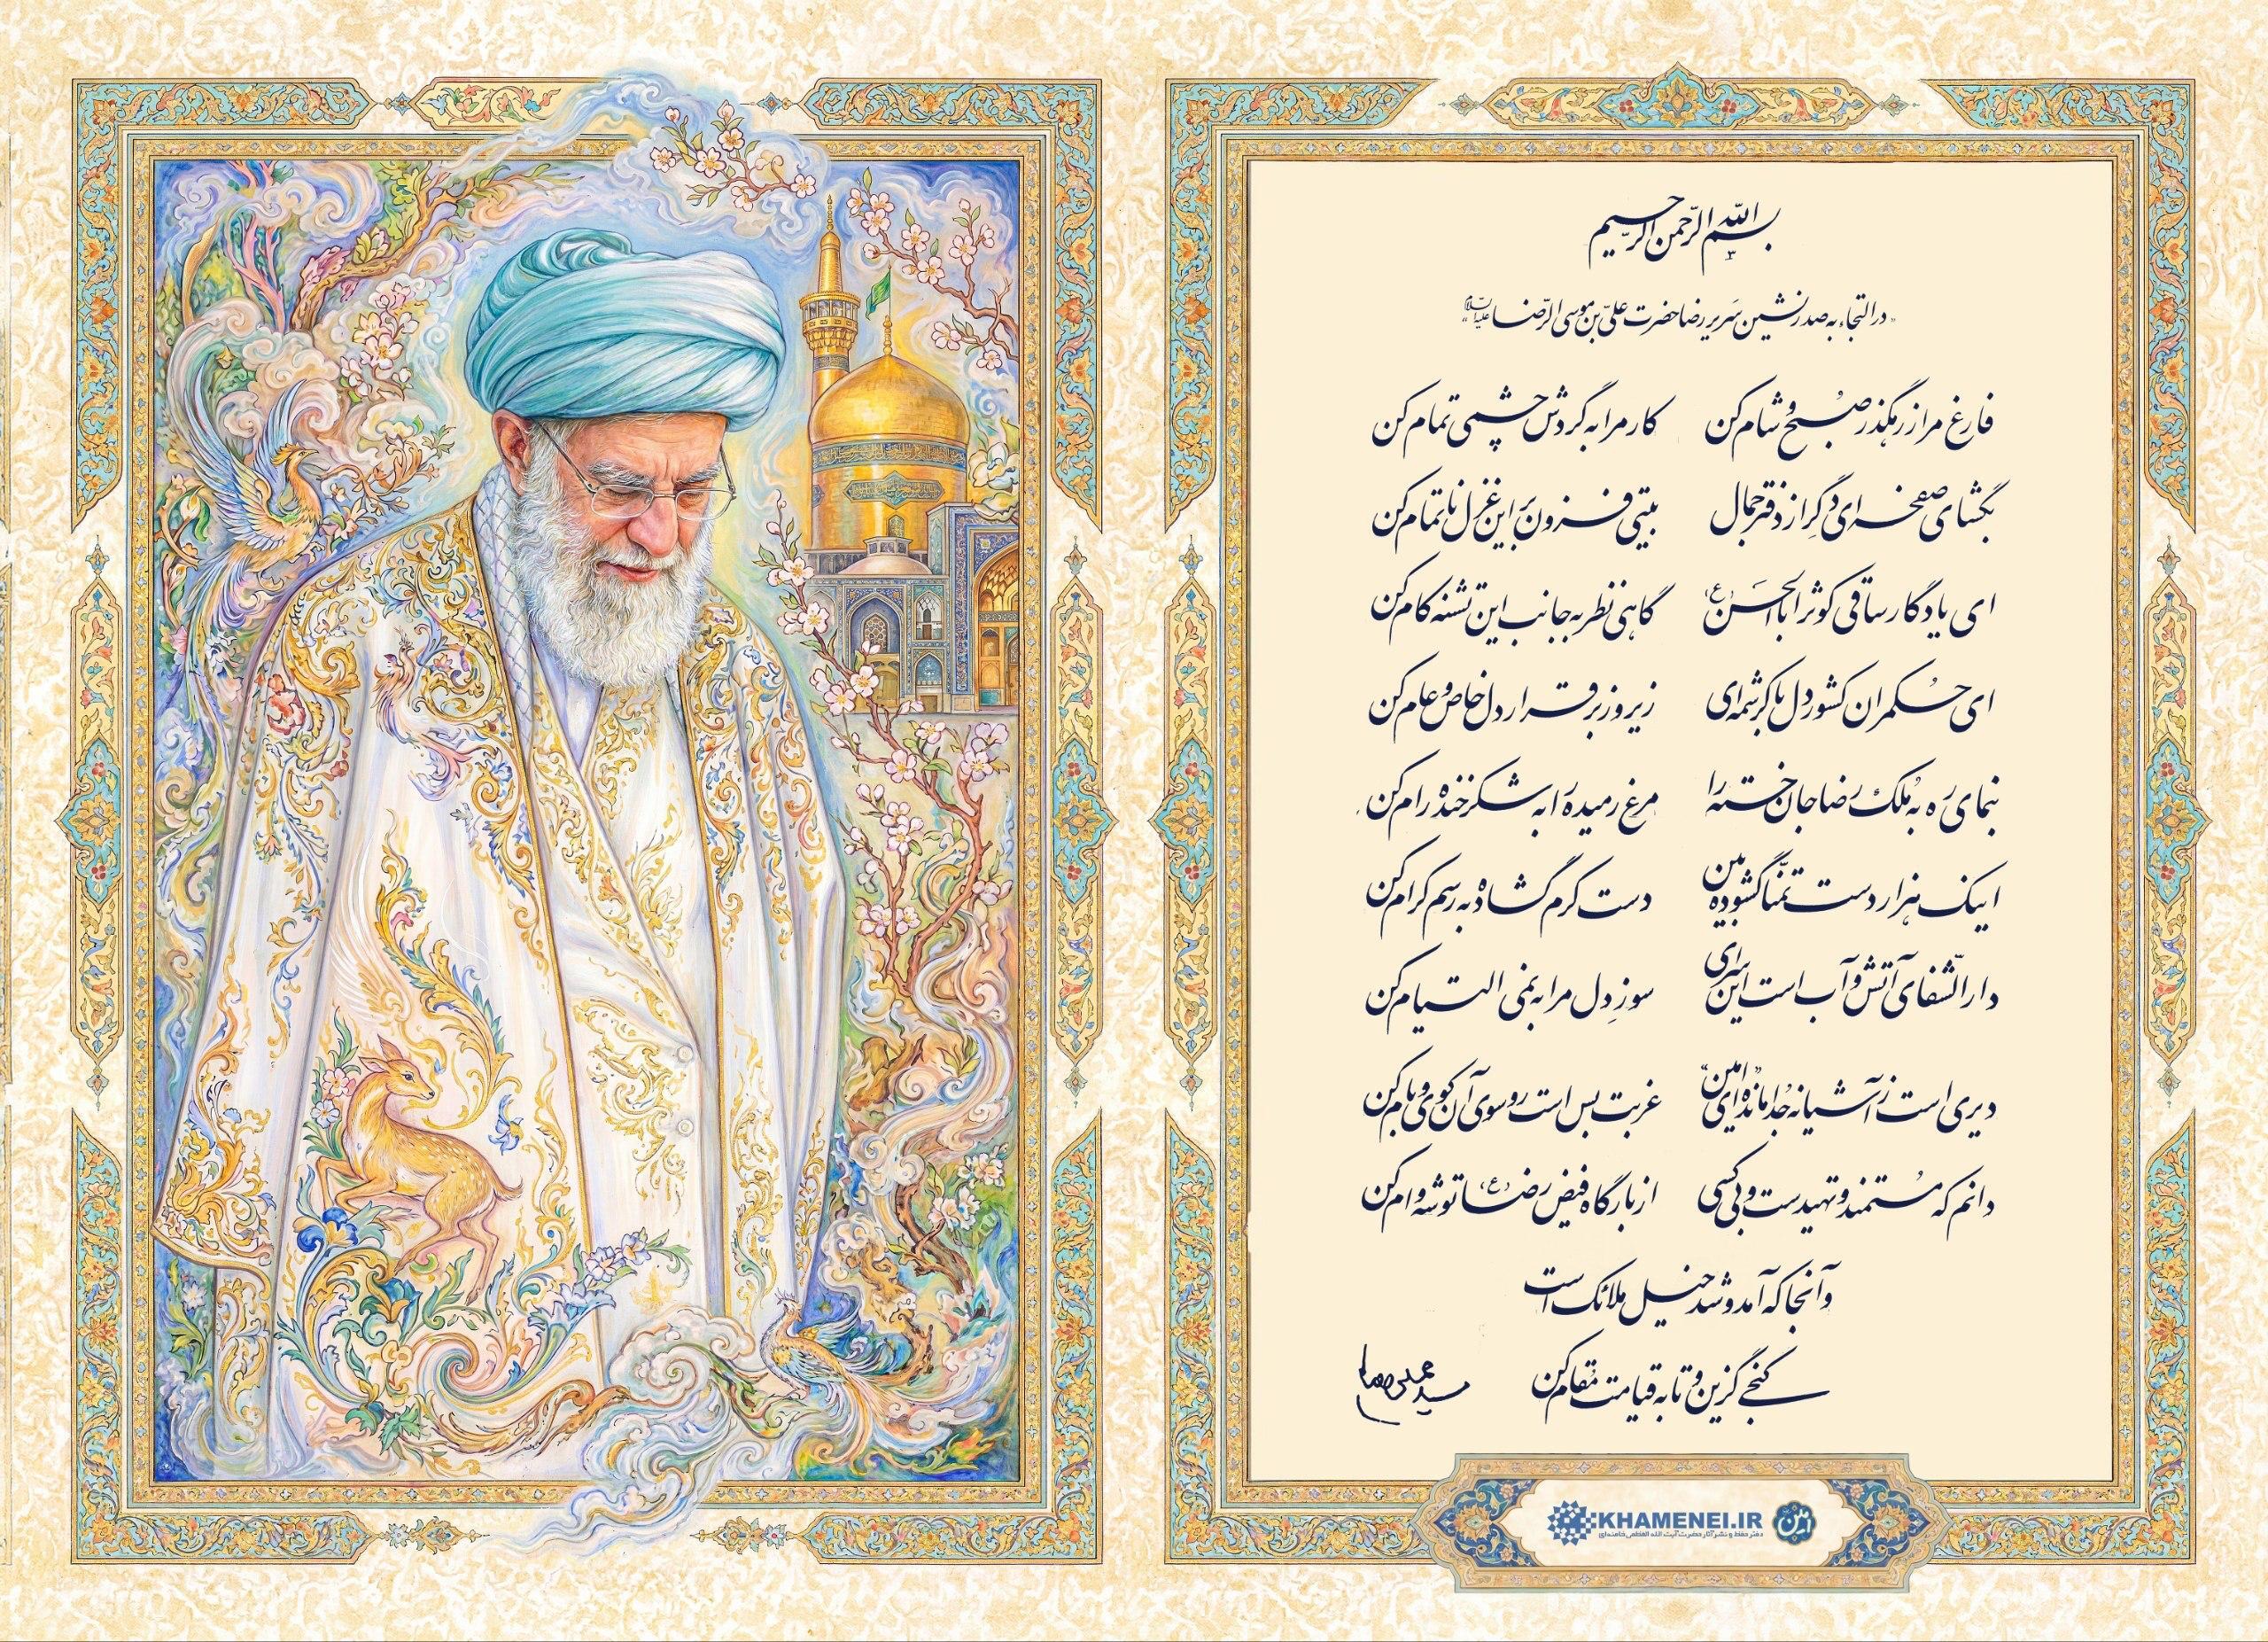 بسم الله الرّحمن الرّحیم
«در التجاء به صدرنشین سَریر رضا حضرت علیّ بن موسی الرّضا علیه‌السّلام»
فارغ مرا ز رهگذر صُبح و شام کن    کار مرا به گردش چشمی تمام کن
بگشای صفحه‌ای دگر از دفتر جمال    بیتی فزون بر این غزل ناتمام کن
ای یادگار ساقی کوثر اباالحَسن (ع)    گاهی نظر به جانب این تشنه کام کن
ای حُکمران کشور دل با کرشمه‌ای    زیر و زبر قرار دل خاص و عام کن
بنمای رَه به مُلک رضا جان خسته را    مرغ رمیده را به شکرخنده رام کن
اینک هزار دست تمنّا گشوده بین    دست کرم گشاده به رسم کرام کن
دارالشّفای آتش و آب است این سرای    سوزِ دل مرا به نمی التیام کن
دیری است ز آشیانه جُدا مانده‌ای «امین»    غربت بس است رو سوی آن کوی و بام کن
دانم که مُستمند و تهیدست و بی‌کسی    از بارگاه فیض رضا (ع) توشه وام کن
وآنجا که آمد و شد خیل ملائک است
کنجی گزین و تا به قیامت مُقام کن
سید علی خامنه‌ای
KHAMENEI.IR
دفتر حفظ و نشر آثار حضرت آیت الله العظمی خامنه‌ای